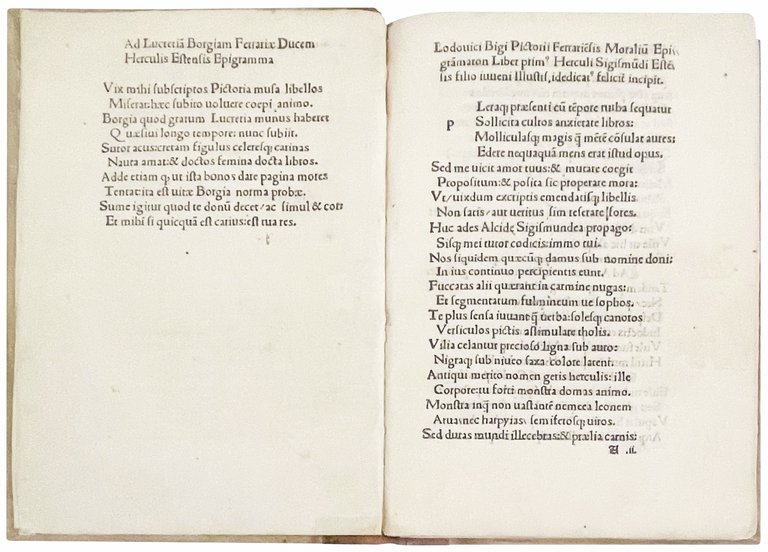 Ad Lucretiā Borgiam Ferrariæ Ducem
Herculis Estensis Epigramma
Vix mihi subscriptos Pictoria musa libellos
Miserat: hæc subito uoluere coepi animo.
Borgia quod gratum Lucretia munus haberet
Quæsiui longo tempore: nunc subiit.
Sutor acus: cretam figulus celeresq; carinas
Nauta amat: & doctos femina docta libros.
Adde etiam q, ut ista bonos dare pagina mores
Tentat: ita est uitæ Borgia norma probæ.
Sume igitur quod te donū decet/ac simul & cor:
Et mihi si quicquā est carius: est tua res.
Lodouici Bigi Pictorii Ferrariēsis Moraliū Epi
grāmaton Liber primꝰ Herculi Sigismūdi Estē
sis filio iuueni Illustṛi, idedicatꝰ felicit̄ incipit.
p Leraq; præsenti cū tēpore turba sequatur
Sollicita cultos anxietate libros:
Molliculasq; magis q̄ mētē cōsulat aures:
Edere nequaquā mens erat istud opus.
Sed me uicit amor tuus: & mutare coegit
Propositum: & posita sic properare mora:
Vt/uixdum exscriptis emendatisq; libellis
Non satis/aut ueritus sim reserare fores.
Huc ades Alcidę Sigismundea propago:
Sisq; mei tutor codicis: immo tui.
Nos siquidem quæcūq; damus sub nomine doni:
In ius continuo percipientis eunt.
Fuccatas alii quærant in carmine nugas:
Et segmentatum fulmineum ue sophos.
Te plus sensa iuuant q̄ uerba: solesq; canoros
Versiculos pictis assimulare tholis.
Vilia celantur precioso ligna sub auro:
Nigraq; sub niueo saxa colore latent.
Antiqui merito nomen geris herculis: ille
Corpore: tu forti monstra domas animo.
Monstra inq̄ non uastantē nemeea leonem
Aruas nec harpyias/semiferosq; uiros.
Sed duras mundi illecebras: & prælia carnis:
A .ii.